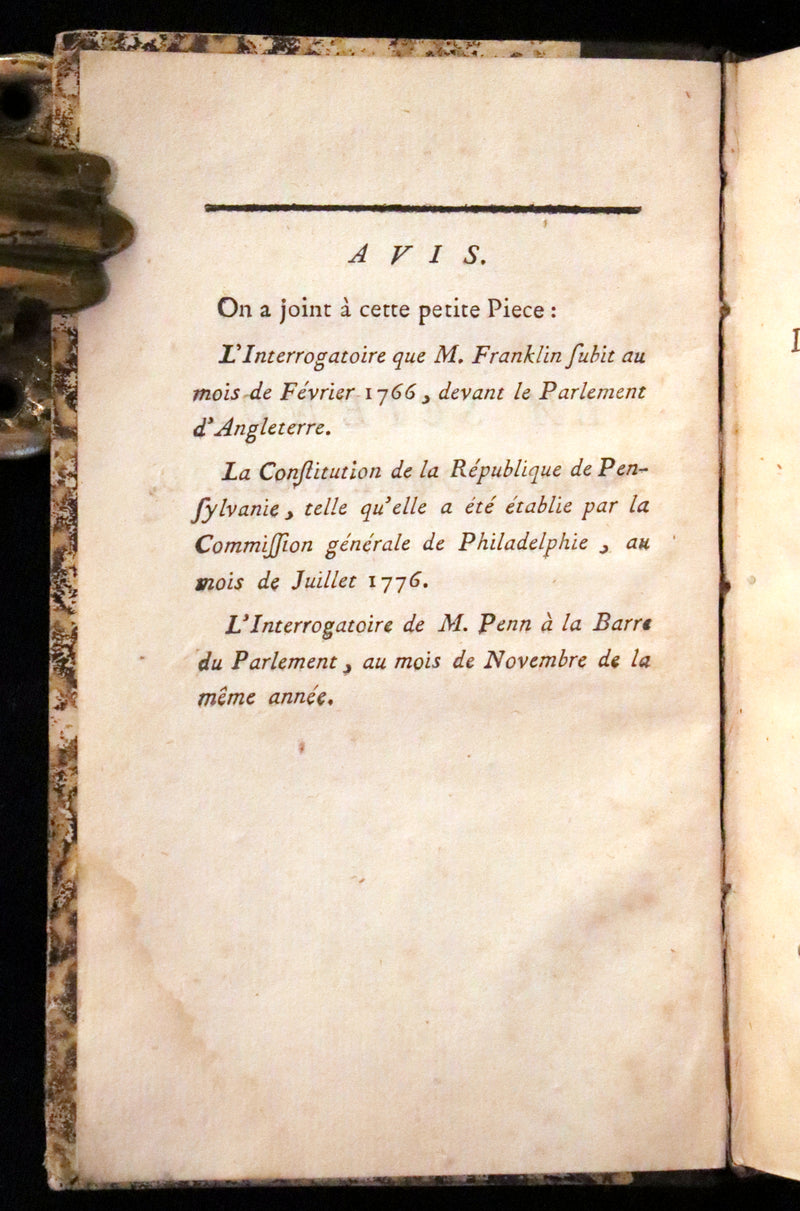 A V I S.
On a joint à cette petite Piece :
L'Interrogatoire que M. Franklin ſubit au
mois de Février 1766, devant le Parlement
d'Angleterre.
La Conſtitution de la République de Pen-
ſylvanie, telle qu'elle a été établie par la
Commiſſion générale de Philadelphie, au
mois de Juillet 1776.
L'Interrogatoire de M. Penn à la Barre
du Parlement, au mois de Novembre de la
même année.